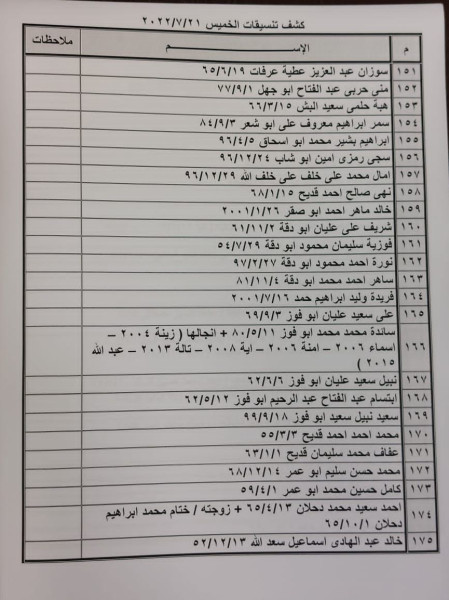 كشف تنسيقات الخميس ٢٠٢٢/٧/٢١
م الإســـــم ملاحظات
١٥١ سوزان عبد العزيز عطية عرفات ٦٥/٦/١٩
١٥٢ منى حربى عبد الفتاح ابو جهل ٧٧/٩/١
١٥٣ هبة حلمى سعيد البش ٦٦/٣/١٥
١٥٤ سمر ابراهيم معروف على ابو شعر ٨٤/٩/٣
١٥٥ ابراهيم بشير محمد ابو اسحاق ٩٦/٤/٥
١٥٦ سجى رمزى امين ابو شاب ٩٦/١٢/٢٤
١٥٧ امال محمد على خلف على خلف الله ٩٦/١٢/٢٩
١٥٨ نهى صالح احمد قديح ٦٨/١/١٥
١٥٩ خالد ماهر احمد ابو صقر ٢٠٠١/١/٢٦
١٦٠ شريف على عليان ابو دقة ٦١/١١/٢
١٦١ فوزية سليمان محمود ابو دقة ٥٤/٧/٢٩
١٦٢ نورة احمد محمود ابو دقة ٩٧/٢/٢٧
١٦٣ ساهر احمد محمد ابو دقة ٨١/١١/٤
١٦٤ فريدة وليد ابراهيم حمد ٢٠٠١/٧/١٦
١٦٥ على سعيد عليان ابو فوز ٦٩/٩/٣
١٦٦ ساندة محمد محمد ابو فوز ٨٠/٥/١١ + انجالها ( زينة ٢٠٠٤ –
اسماء ٢٠٠٦ – امنة ٢٠٠٦ – اية ٢٠٠٨ – تالة ٢٠١٣ – عبد الله
٢٠١٥ )
١٦٧ نبيل سعيد عليان ابو فوز ٦٢/٦/٦
١٦٨ ابتسام عبد الفتاح عبد الرحيم ابو فوز ٦٢/٥/١٢
١٦٩ سعيد نبيل سعيد ابو فوز ٩٩/٩/١٨
١٧٠ محمد احمد احمد قديح ٥٥/٣/٣
١٧١ عفاف محمد سليمان قديح ٦٣/١/١
١٧٢ محمد حسن سليم ابو عمر ٦٨/١٢/١٤
١٧٣ كامل حسين محمد ابو عمر ٥٩/٤/١
١٧٤ احمد سعيد محمد دحلان ٦٥/٤/١٣ + زوجته / ختام محمد ابراهيم
دحلان ٦٥/١٠/١
١٧٥ خالد عبد الهادى اسماعيل سعد الله ٥٢/١٢/١٣